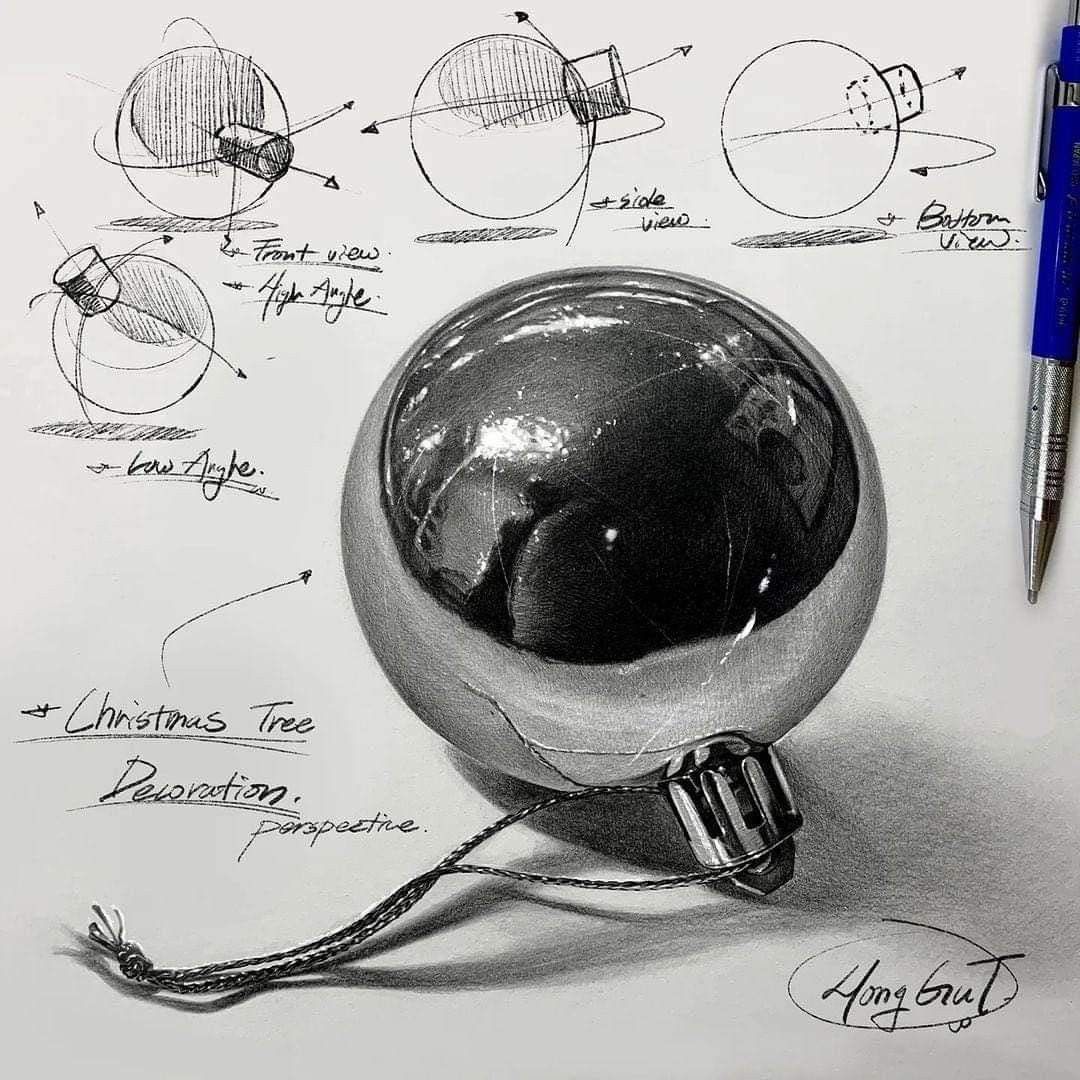 Front view.
High Angle.
side
view.
Bottom
View.
Low Angle.
Christmas Tree
Decoration.
perspective.
JAPAN